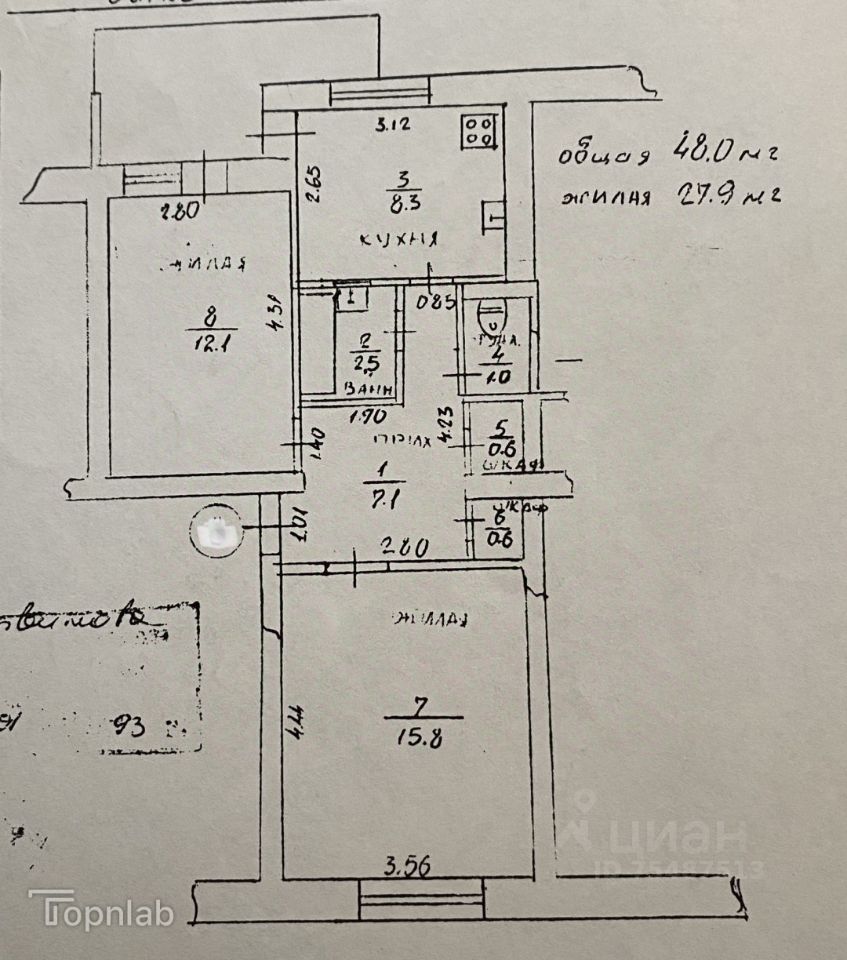 3.12
общая 48.0 м2
жилая 27.9 м2
2.65
3
8.3
кухня
2.80
жилая
4.31
8
12.1
0.85
2
2.5
Ванн
1.70
4
1.0
4.23
прих
1.40
5
0.6
шкаф
1
7.1
1.01
шкаф
6
0.6
2.80
жилая
7
15.8
4.44
93
3.56
циан
ID 75487513
Topnlab